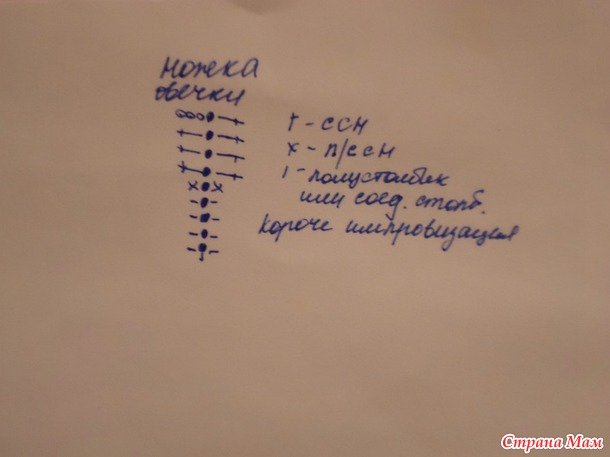 ножка
свечки
† - ССН
x - п/ссн
ı - полустолбик
или соед. столб.
короче импровизация
Страна Мам